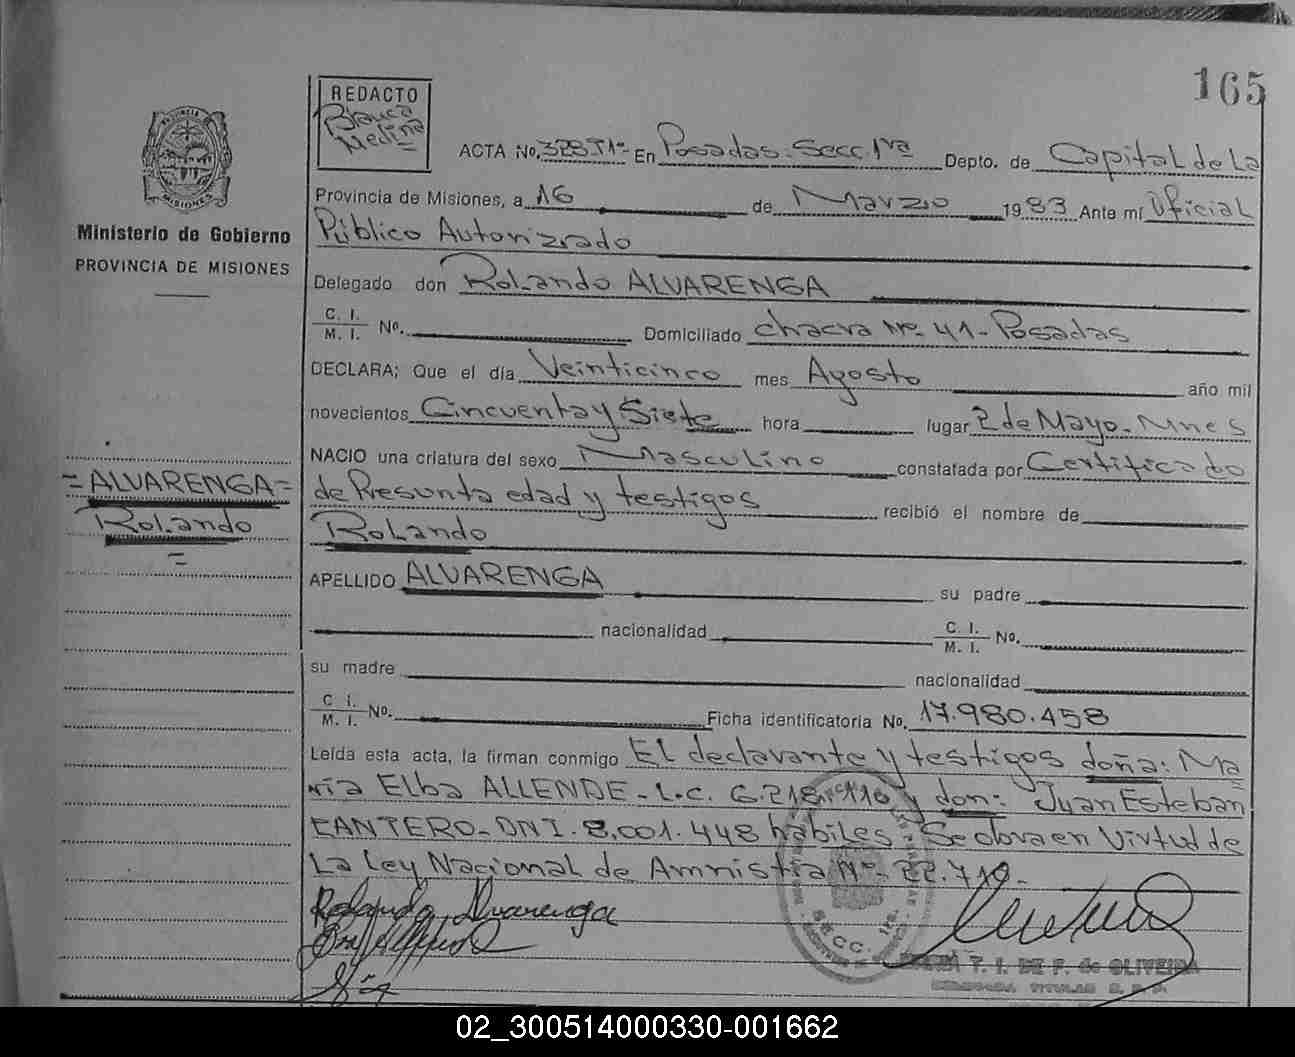 165
REDACTO
Blanca
Medina
ACTA No. 328 T1º En Posadas. Secc. 1ra Depto. de Capital de La
Provincia de Misiones, a 16 de Marzo 1983 Ante mí Oficial
Público Autorizado
Ministerio de Gobierno
PROVINCIA DE MISIONES
Delegado don Rolando ALVARENGA
C. I.
M. I. Nº. Domiciliado chacra Nº 41 - Posadas
DECLARA; Que el día Veinticinco mes Agosto año mil
novecientos Cincuenta y Siete hora lugar 2 de Mayo - Mnes
NACIO una criatura del sexo Masculino constatada por Certificado
= ALVARENGA =
Rolando
=
de Presunta edad y testigos recibió el nombre de
Rolando
APELLIDO ALVARENGA su padre
nacionalidad C. I.
M. I. No.
su madre nacionalidad
C. I.
M. I. No. Ficha identificatoria No. 17.980.458
Leída esta acta, la firman conmigo El declarante y testigos doña: Ma
ría Elba ALLENDE - L.C. 6.218.116 y don: Juan Esteban
CANTERO - DNI. 8.001.448 hábiles. Se labra en Virtud de
La Ley Nacional de Amnistía Nº 22.710 -
Rolando Alvarenga
T. I. DE F. de OLIVEIRA
02_300514000330-001662